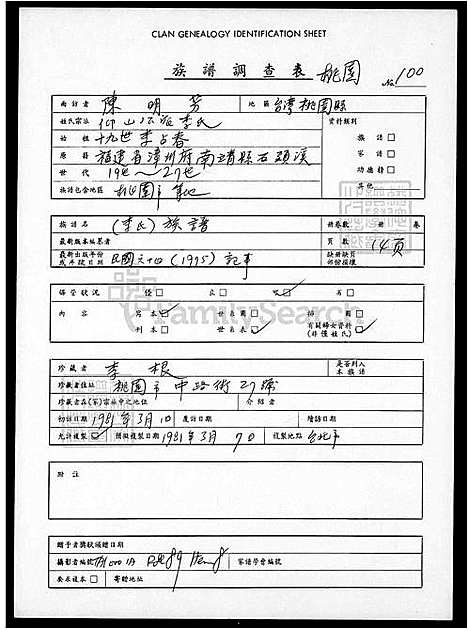 CLAN GENEALOGY IDENTIFICATION SHEET
族譜調查表 桃園 No 100
面訪者 陳明芳 地區 台灣桃園縣
姓氏宗派 李氏 資料類別
始祖 十九世李占春 族譜 □
原籍 福建省漳州府南靖縣石頭溪 家譜 □
世代 19世~27世 功德榜 □
族譜包含地區 桃園市 其他
族譜名 (李氏)族譜 冊卷數 冊 卷
最新版本編纂者 頁數 14頁
最新出版年份或年款日期 民國六十四 (1975) 缺冊缺頁部份損壞
保管狀況 優 □ 良 □
內容 寫本 世系圖 □ 照片 □
刊本 □ 世系表 有關婦女資料 (非僅姓氏)
FamilySearch
珍藏者 李根 是否列入本族譜
珍藏者住址 桃園市中路街27號
珍藏者在(家)宗族中之地位 介紹者
初訪日期 1981年3月10 度訪日期 續訪日期
允許複製 攝製日期 1981年3月 複製地點 台北市
附註
贈予者獎狀頒贈日期
攝影者編號 家譜學會編號
要求複本 □ 寄贈地址